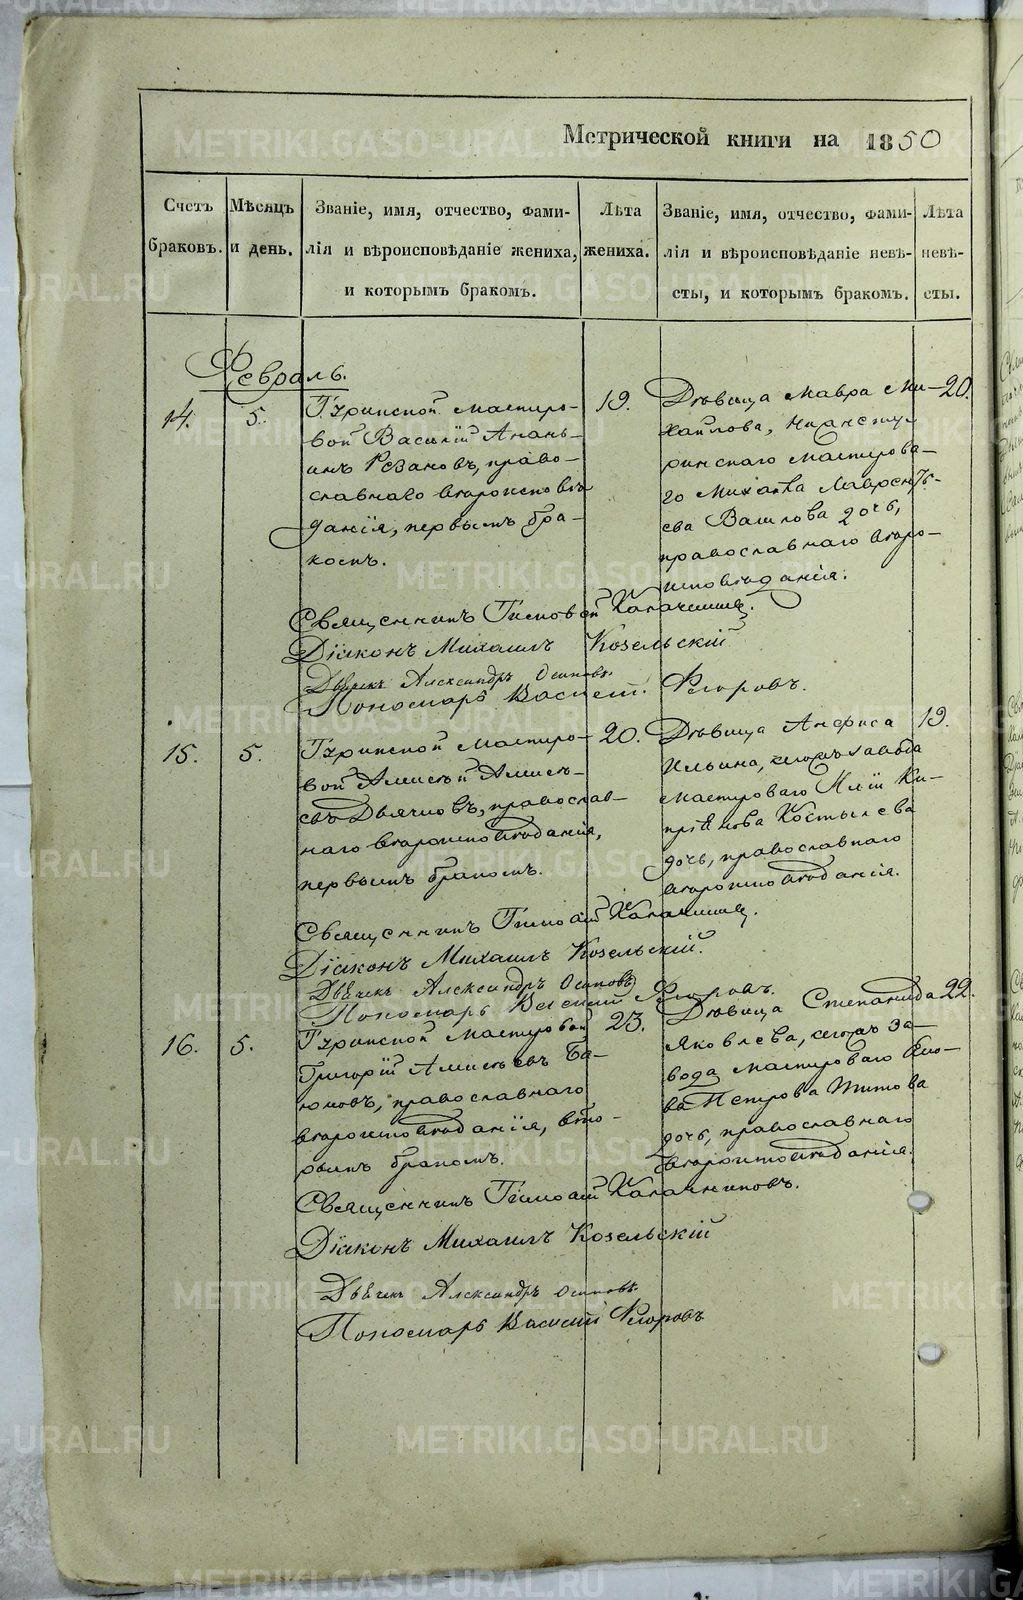 Метрической книги на 1850
Счетъ браковъ.
Мѣсяцъ и день.
Званіе, имя, отчество, фами-
лія и вѣроисповѣданіе жениха,
и которымъ бракомъ.
Лѣта жениха.
Званіе, имя, отчество, фами-
лія и вѣроисповѣданіе невѣ-
сты, и которымъ бракомъ.
Лѣта невѣ-
сты.
Февраль.
14.
5.
Туринской мастеро-
вой Василій Анань-
инъ Рѣзановъ, право-
славнаго вѣроисповѣ
данія, первымъ бра-
комъ.
19.
Дѣвица Мавра Ми-
хайлова,
ринскаго мастерова-
го Михаила Лаврентъ-
ева дочь,
православнаго вѣро-
исповѣданія.
20.
Священникъ Тимофей
Діаконъ Михаилъ Козельскій
Дьячекъ Александръ Осиповъ
Пономарь Василій Ѳедоровъ.
15.
5.
Туринской мастеро-
вой Алексѣй Алексѣ-
евъ Дьячковъ, православ-
наго вѣроисповѣданія,
первымъ бракомъ.
20.
Дѣвица Анфиса
Ильина, завода
мастероваго Иліи Ки-
пріянова Костылева
дочь, православнаго
вѣроисповѣданія.
19.
Священникъ Тимоѳей
Діаконъ Михаилъ Козельскій.
Дьячекъ Александръ Осиповъ
Пономарь Василій Ѳедоровъ.
16.
5.
Туринской мастеровой
Григорій Алексѣевъ Ба-
православнаго
вѣроисповѣданія, вто-
рымъ бракомъ.
23.
Дѣвица Степанида
Яковлева, за-
вода мастероваго Яко-
ва Петрова Титова
дочь, православнаго
вѣроисповѣданія.
22.
Священникъ Тимоѳей Калачниковъ.
Діаконъ Михаилъ Козельскій
Дьячекъ Александръ Осиповъ
Пономарь Василій Ѳедоровъ
METRIKI.GASO-URAL.RU